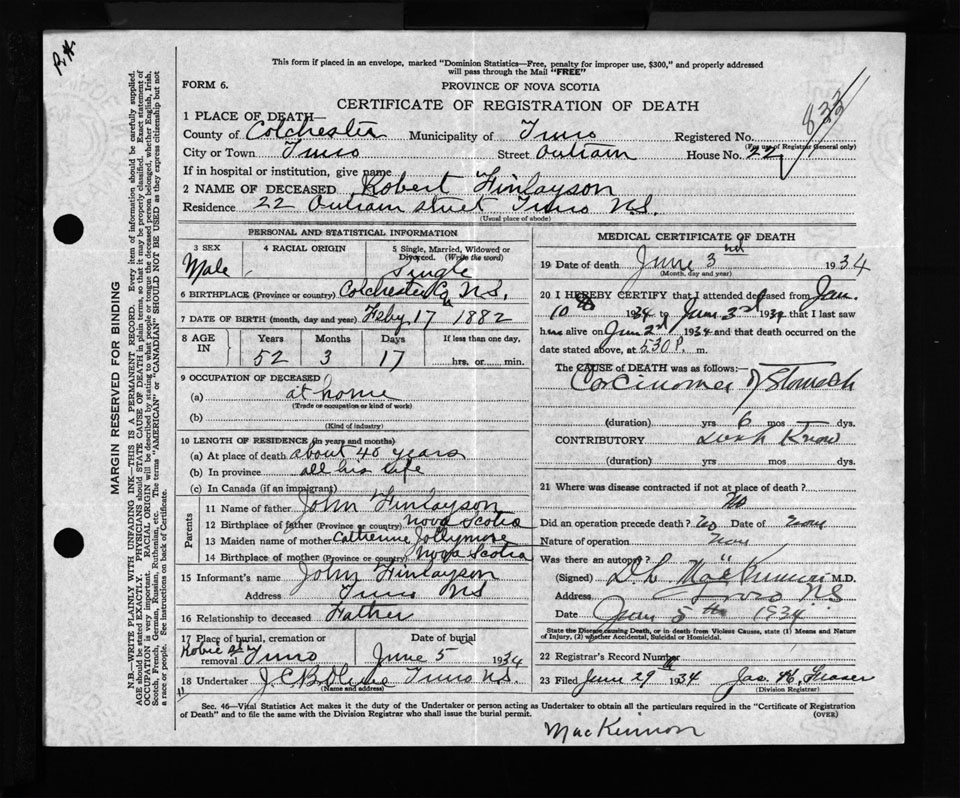 R.H.
This form if placed in an envelope, marked "Dominion Statistics—Free, penalty for improper use, $300," and properly addressed
will pass through the Mail "FREE"
FORM 6.
PROVINCE OF NOVA SCOTIA
CERTIFICATE OF REGISTRATION OF DEATH
833
1 PLACE OF DEATH—
County of Colchester Municipality of Truro Registered No.
(For use of Registrar General only)
City or Town Truro Street Outram House No. 22
If in hospital or institution, give name
2 NAME OF DECEASED Robert Finlayson
Residence 22 Outram street Truro N.S.
(Usual place of abode)
PERSONAL AND STATISTICAL INFORMATION
3 SEX 4 RACIAL ORIGIN 5 Single, Married, Widowed or Divorced. (Write the word)
Male Single
6 BIRTHPLACE (Province or country) Colchester Co N.S.
7 DATE OF BIRTH (month, day and year) Feby 17 1882
8 AGE IN Years Months Days If less than one day,
52 3 17 hrs. or min.
9 OCCUPATION OF DECEASED
(a) at home
(Trade or occupation or kind of work)
(b)
(Kind of industry)
10 LENGTH OF RESIDENCE (in years and months)
(a) At place of death about 40 years
(b) In province all his life
(c) In Canada (if an immigrant)
Parents
11 Name of father John Finlayson
12 Birthplace of father (Province or country) Nova Scotia
13 Maiden name of mother Catherine Jollymore
14 Birthplace of mother (Province or country) Nova Scotia
15 Informant's name John Finlayson
Address Truro NS
16 Relationship to deceased Father
17 Place of burial, cremation or removal Robie St Truro Date of burial June 5 1934
18 Undertaker Truro N.S.
(Name and address)
MEDICAL CERTIFICATE OF DEATH
19 Date of death June 3rd 1934
(Month, day and year)
20 I HEREBY CERTIFY that I attended deceased from Jan.
10 1934 to June 3rd 1934 that I last saw
him alive on June 2nd 1934 and that death occurred on
date stated above, at 5.30 P. m.
The CAUSE OF DEATH was as follows:—
Carcinoma of Stomach
(duration) yrs 6 mos dys.
CONTRIBUTORY Dont Know
(duration) yrs. mos. dys.
21 Where was disease contracted if not at place of death?
No
Did an operation precede death? No Date of
Nature of operation
Was there an autopsy? "
(Signed) D. L. MacKinnon M.D.
Address Truro NS
Date June 5th 1934
State the Disease causing Death, or in death from Violent Causes, state (1) Means and Nature
of Injury, (2) whether Accidental, Suicidal or Homicidal.
22 Registrar's Record Number
23 Filed June 29 1934 Jas. H. Fraser
(Division Registrar)
Sec. 46—Vital Statistics Act makes it the duty of the Undertaker or person acting as Undertaker to obtain all the particulars required in the "Certificate of Registration
of Death" and to file the same with the Division Registrar who shall issue the burial permit. (OVER)
MacKinnon
MARGIN RESERVED FOR BINDING
N.B.—WRITE PLAINLY WITH UNFADING INK—THIS IS A PERMANENT RECORD. Every item of information should be carefully supplied.
AGE should be stated EXACTLY. PHYSICIANS should STATE CAUSE OF DEATH in plain terms, so that it may be properly classified. Exact statement of
OCCUPATION is very important. RACIAL ORIGIN will be described by stating to what people or tongue the deceased person belonged, whether English, Irish,
Scotch, French, German, Russian, Ruthenian, etc. The terms "AMERICAN" or "CANADIAN" SHOULD NOT BE USED as they express citizenship but not
a race or people. See instructions on back of Certificate.